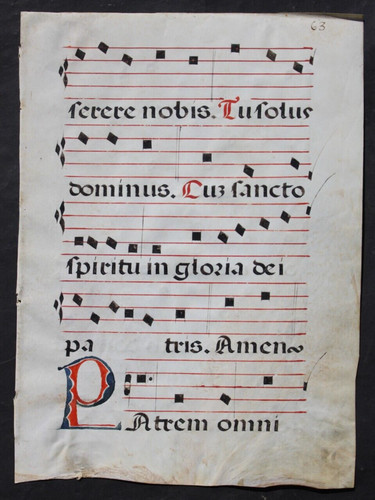 63
serere nobis. Tu solus
dominus. Cuz sancto
spiritu in gloria dei
pa tris. Amen
PAtrem omni